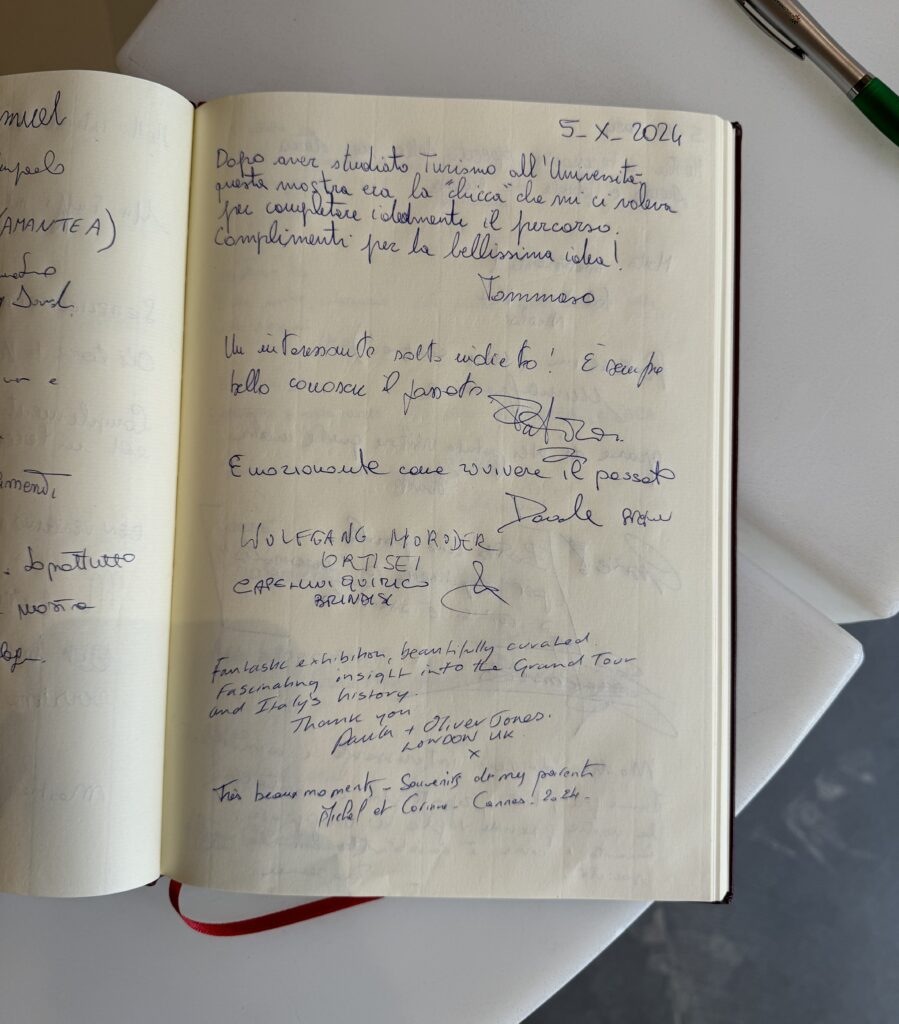 muel
(AMANTEA)
. Soprattutto
mostra
5_X_2024
Dopo aver studiato Turismo all'Università
questa mostra era la "chicca" che mi ci voleva
per completare idealmente il percorso.
Complimenti per la bellissima idea!
Tommaso
Un interessante salto indietro! È sempre
bello conoscere il passato
Emozionante come rivivere il passato
Davide
WOLFGANG MORODER
ORTISEI
QUIRICO
BRINDISI
&
Fantastic exhibition, beautifully curated
Fascinating insight into the Grand Tour
and Italy's history.
Thank you
Paula + Oliver Jones.
LONDON UK
x
Très beaux moments - Souvenirs de my parents
Michel et Corinne - Cannes. 2024.